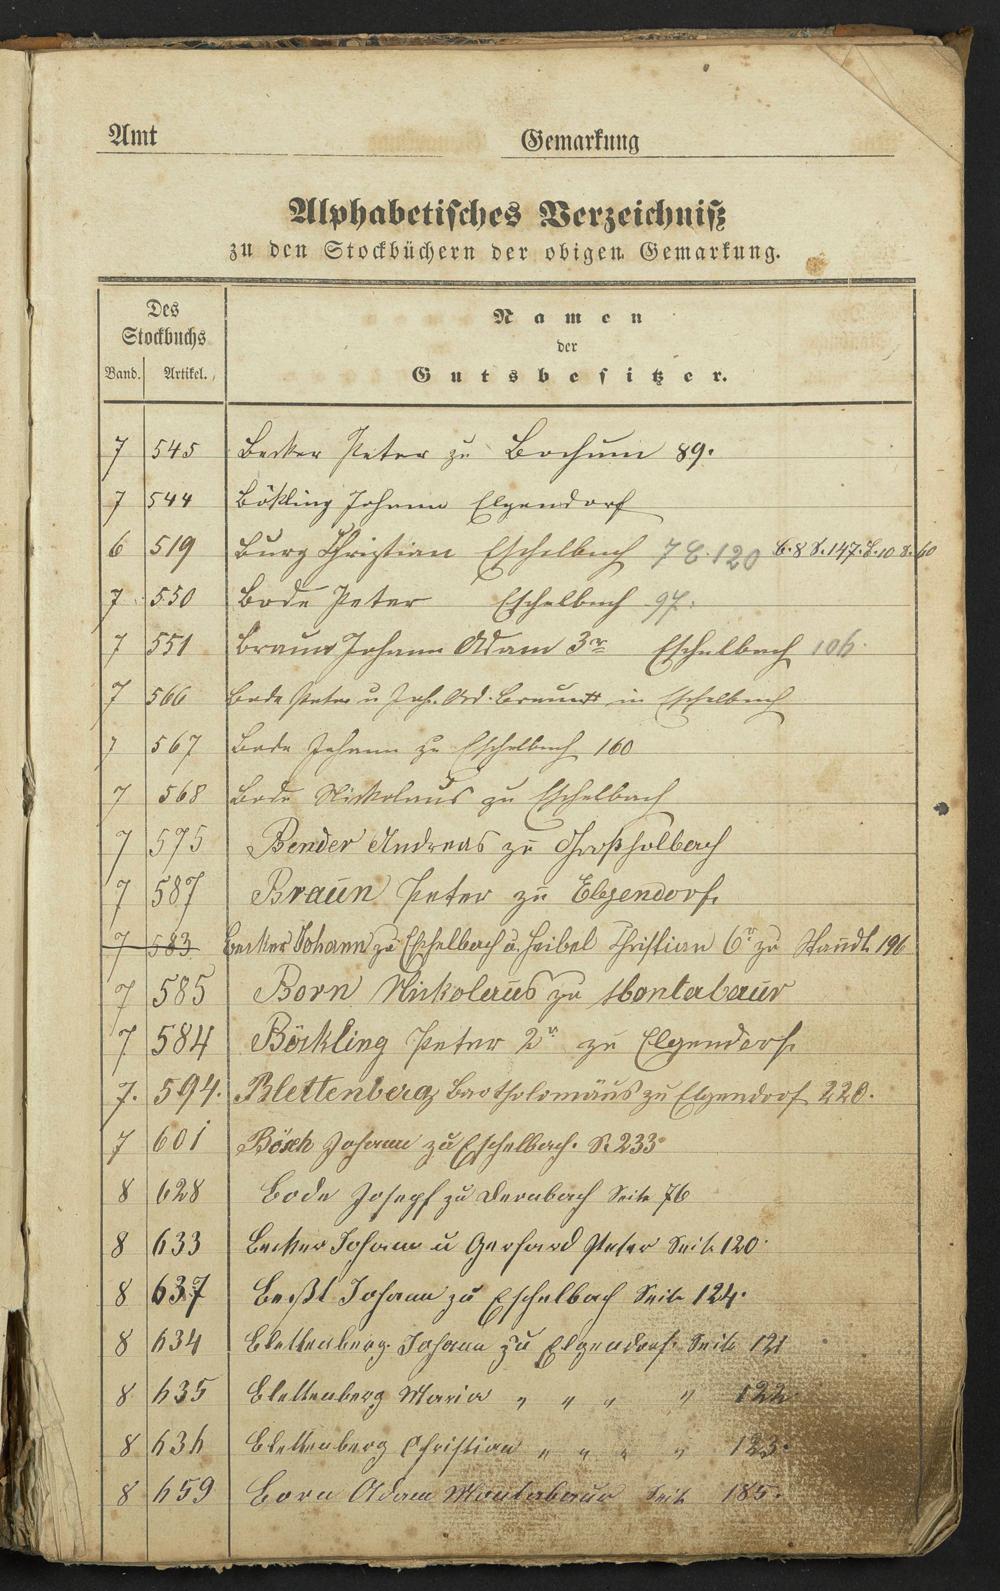 Amt
Gemarkung
Alphabetisches Verzeichniß
zu den Stockbüchern der obigen Gemarkung.
Des
Stockbuchs
Band. Artikel.
Namen
der
Gutsbesitzer.
7 545 Becker Peter zu Bochum 89.
7 544 Bökling Johann Elgendorf
6 519 Burg Christian Eschelbach 7 S. 120 B. 8 S. 147. B. 10 S. 60
7 550 Bode Peter Eschelbach 97.
7 551 Braun Johann Adam 3r Eschelbach 106.
7 566 Bode Peter u Joh. Ad. Braun in Eschelbach
7 567 Bode Johann zu Eschelbach 160
7 568 Bode Nickolaus zu Eschelbach
7 575 Bender Andreas zu Großholbach
7 587 Braun Peter zu Elgendorf.
7 583 Becker Johann zu Eschelbach u. Heibel Christian 6r zu Staudt 196
7 585 Born Nickolaus zu Montabaur
7 584 Böckling Peter 2r zu Elgendorf.
7. 594. Blettenberg Bartholomäus zu Elgendorf 220.
7 601 Bösch Johann zu Eschelbach. S. 233
8 628 Bode Josepf zu Dernbach Seite 76
8 633 Becker Johann u Gerhard Peter Seite 120.
8 637 Johann zu Eschelbach Seite 124.
8 634 Blettenberg Johann zu Elgendorf. Seite 121
8 635 Blettenberg Maria " " " " 122
8 636 Blettenberg Christian " " " " 123.
8 659 Born Adam Montabaur Seite 185.